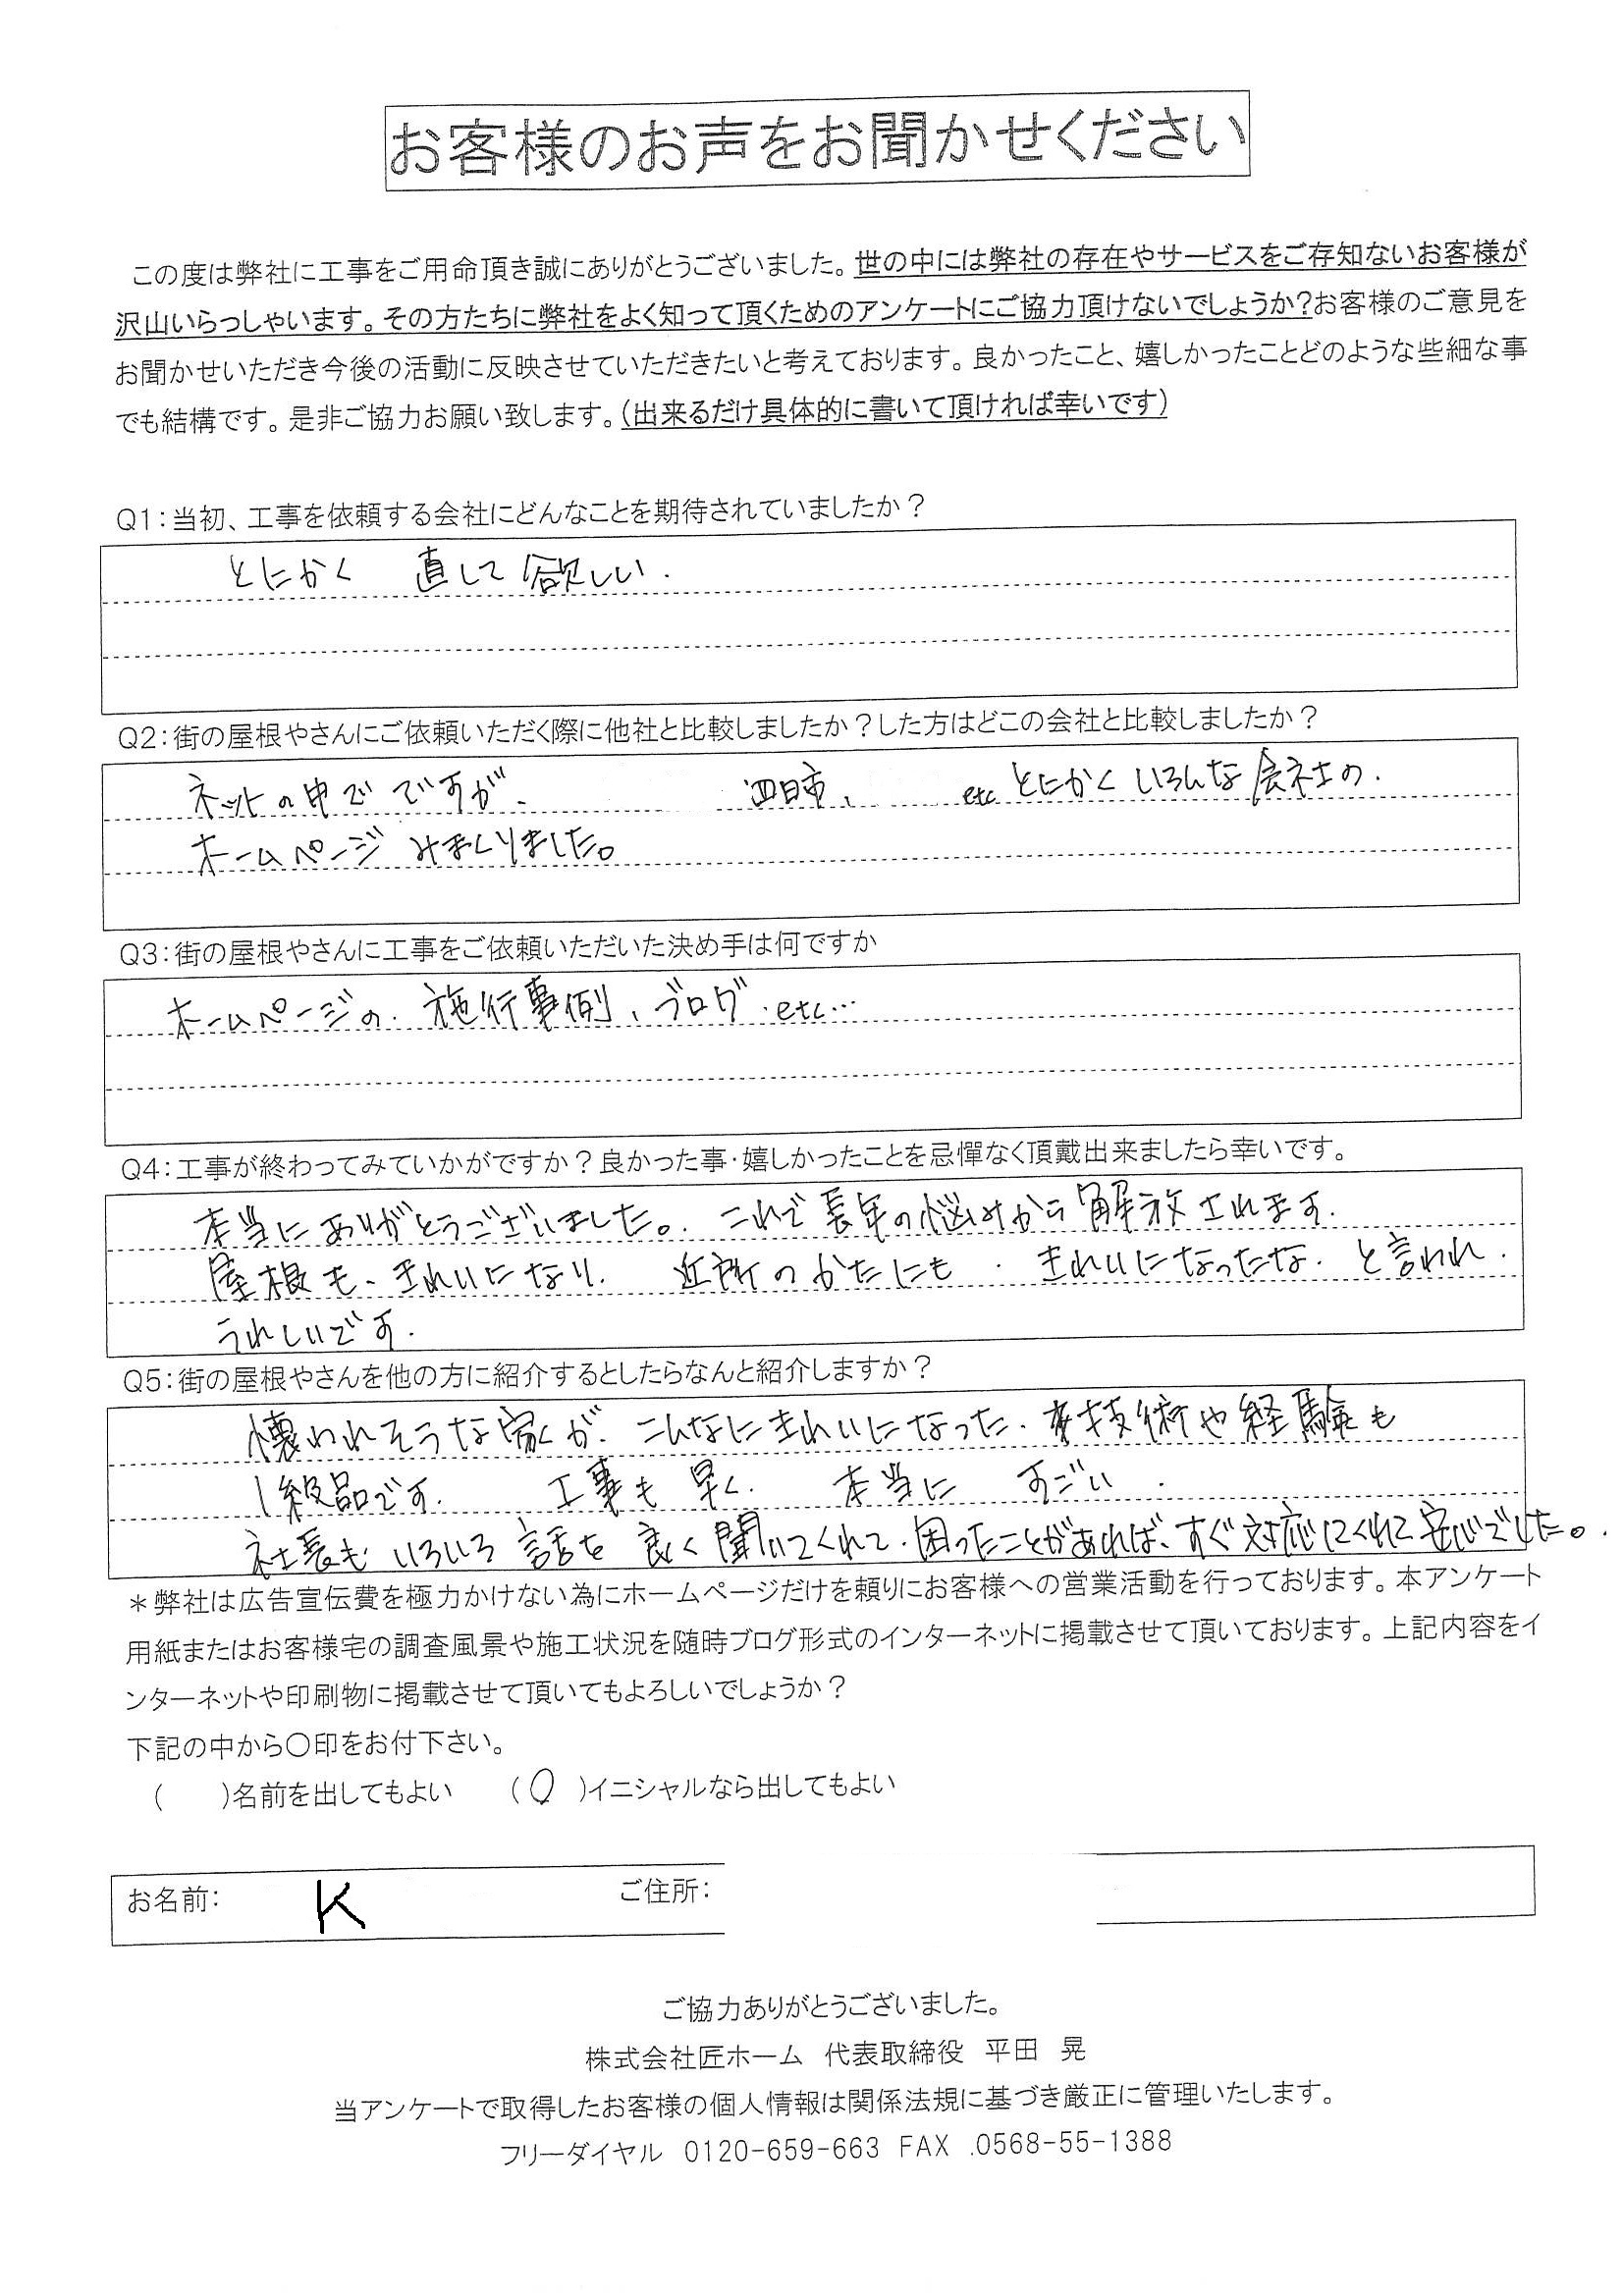 お客様のお声をお聞かせください
この度は弊社に工事をご用命頂き誠にありがとうございました。世の中には弊社の存在やサービスをご存知ないお客様が
沢山いらっしゃいます。その方たちに弊社をよく知って頂くためのアンケートにご協力頂けないでしょうか?お客様のご意見を
お聞かせいただき今後の活動に反映させていただきたいと考えております。良かったこと、嬉しかったことどのような些細な事
でも結構です。是非ご協力お願い致します。(出来るだけ具体的に書いて頂ければ幸いです)
Q1:当初、工事を依頼する会社にどんなことを期待されていましたか?
とにかく 直して欲しい.
Q2:街の屋根やさんにご依頼いただく際に他社と比較しましたか?した方はどこの会社と比較しましたか?
ネットの中でですが、 四日市、 etc とにかくいろんな会社の.
ホームページみまくりました。
Q3:街の屋根やさんに工事をご依頼いただいた決め手は何ですか
ホームページの.施行事例、ブログ.etc…
Q4:工事が終わってみていかがですか?良かった事・嬉しかったことを忌憚なく頂戴出来ましたら幸いです。
本当にありがとうございました。.これで長年の悩みから解放されます.
屋根も、きれいになり. 近所のかたにも.きれいになったな.と言われ.
うれしいです.
Q5:街の屋根やさんを他の方に紹介するとしたらなんと紹介しますか?
壊われそうな家が.こんなにきれいになった.技術や経験も
1級品です. 工事も早く. 本当に すごい.
社長も いろいろ 話を 良く聞いてくれて.困ったことがあれば、すぐ対応してくれて安心でした。.
*弊社は広告宣伝費を極力かけない為にホームページだけを頼りにお客様への営業活動を行っております。本アンケート
用紙またはお客様宅の調査風景や施工状況を随時ブログ形式のインターネットに掲載させて頂いております。上記内容をイ
ンターネットや印刷物に掲載させて頂いてもよろしいでしょうか?
下記の中から○印をお付下さい。
( )名前を出してもよい (○ )イニシャルなら出してもよい
お名前: K ご住所:
ご協力ありがとうございました。
株式会社匠ホーム 代表取締役 平田 晃
当アンケートで取得したお客様の個人情報は関係法規に基づき厳正に管理いたします。
フリーダイヤル 0120-659-663 FAX .0568-55-1388